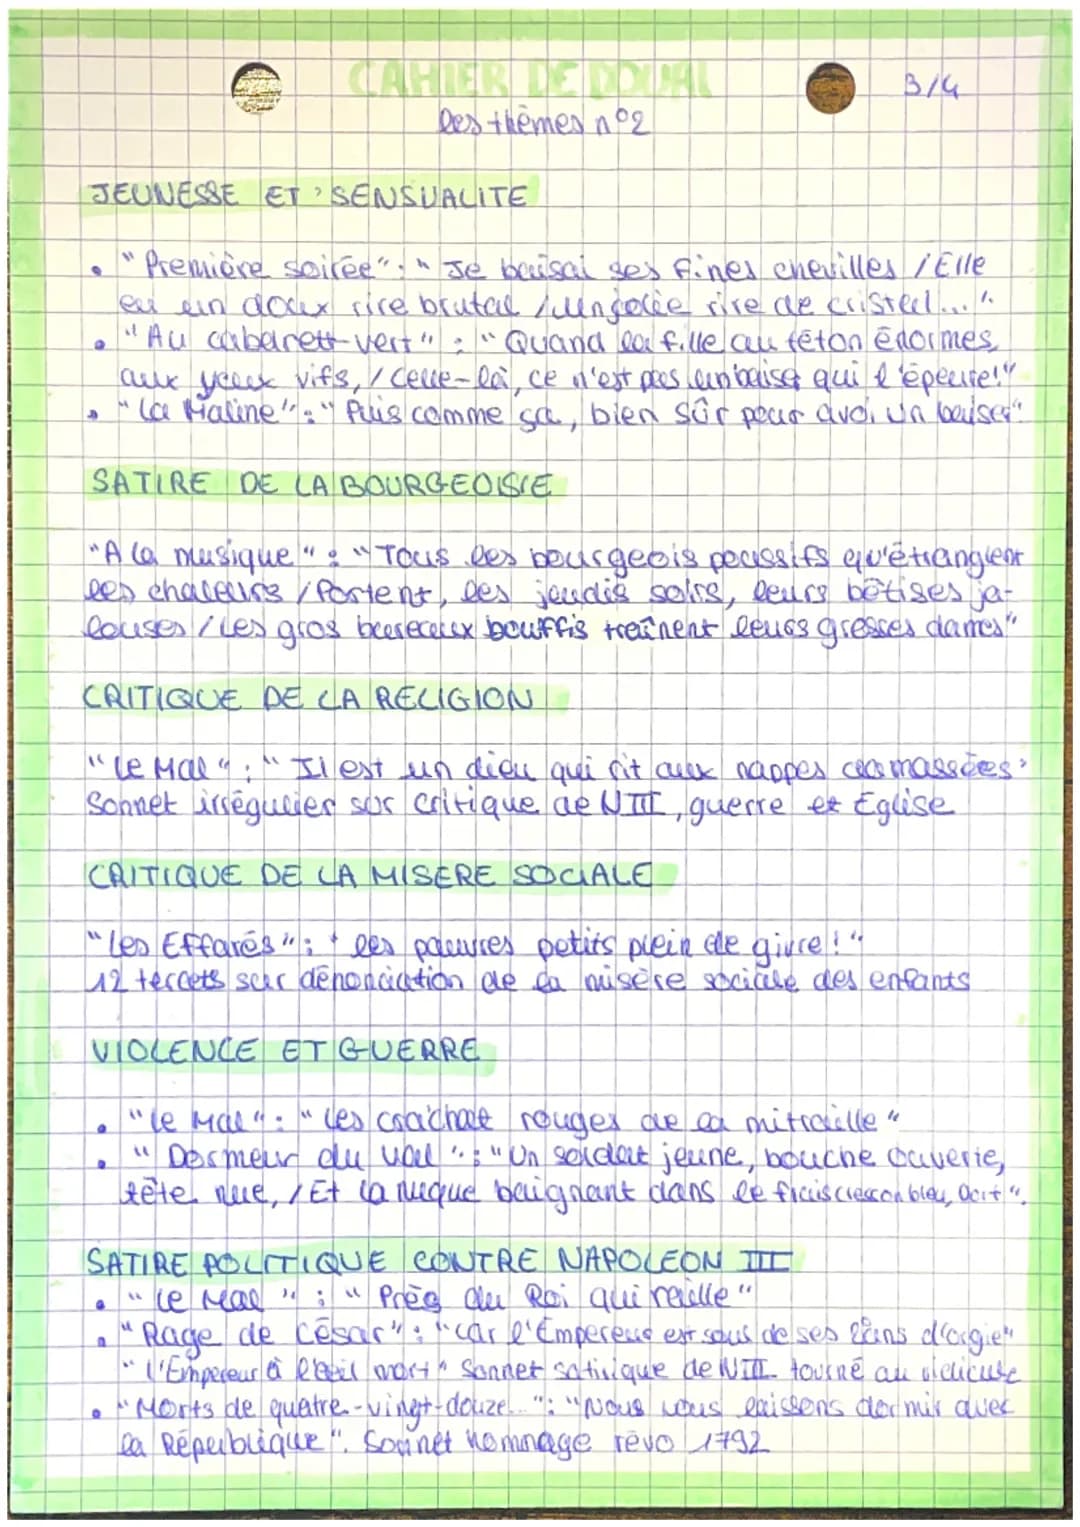 CAHIER DE DOUAI
3/4
les thèmes n°2
JEUNESSE ET SENSUALITE
• "Première soirée": "Je baisai ses fines chevilles / Elle
eu un doux rire brutal / un jolie rire de cristal..."
• "Au cabarett-vert" : "Quand la fille au téton énormes,
aux yeux vifs, / Celle-là, ce n'est pas un baiser qui l'épeure!"
• "La Maline": "Puis comme ça, bien sûr pour avoi un baiser"
SATIRE DE LA BOURGEOISIE
"A la musique" : "Tous les bourgeois poussifs qu'étranglent
les chaleurs / Portent, les jeudis soirs, leurs bêtises ja-
louses / Les gros bureaux bouffis traînent leurs grosses dames"
CRITIQUE DE LA RELIGION
"Le Mal" : "Il est un dieu qui rit aux nappes
Sonnet irrégulier sur critique de NIII, guerre et Eglise
CRITIQUE DE LA MISERE SOCIALE
"Les Effarés" : "les pauvres petits plein de givre!"
12 tercets sur dénonciation de la misère sociale des enfants
VIOLENCE ET GUERRE
• "Le Mal" : "Les crachat rouges de la mitraille"
• "Dormeur du val" : "Un soldat jeune, bouche ouverte,
tête nue, / Et la nuque baignant dans le frais cresson bleu, Dort".
SATIRE POLITIQUE CONTRE NAPOLEON III
• "Le Mal" : "Près du Roi qui raille"
• "Rage de César" : "car l'Empereur est sous de ses 20ans d'orgie"
"L'Empereur à l'oeil mort" Sonnet satirique de NIII tourné au ridicule
• "Morts de quatre-vingt-douze..." : "Nous vous laissons dormir avec
la République". Sonnet hommage révo 1792